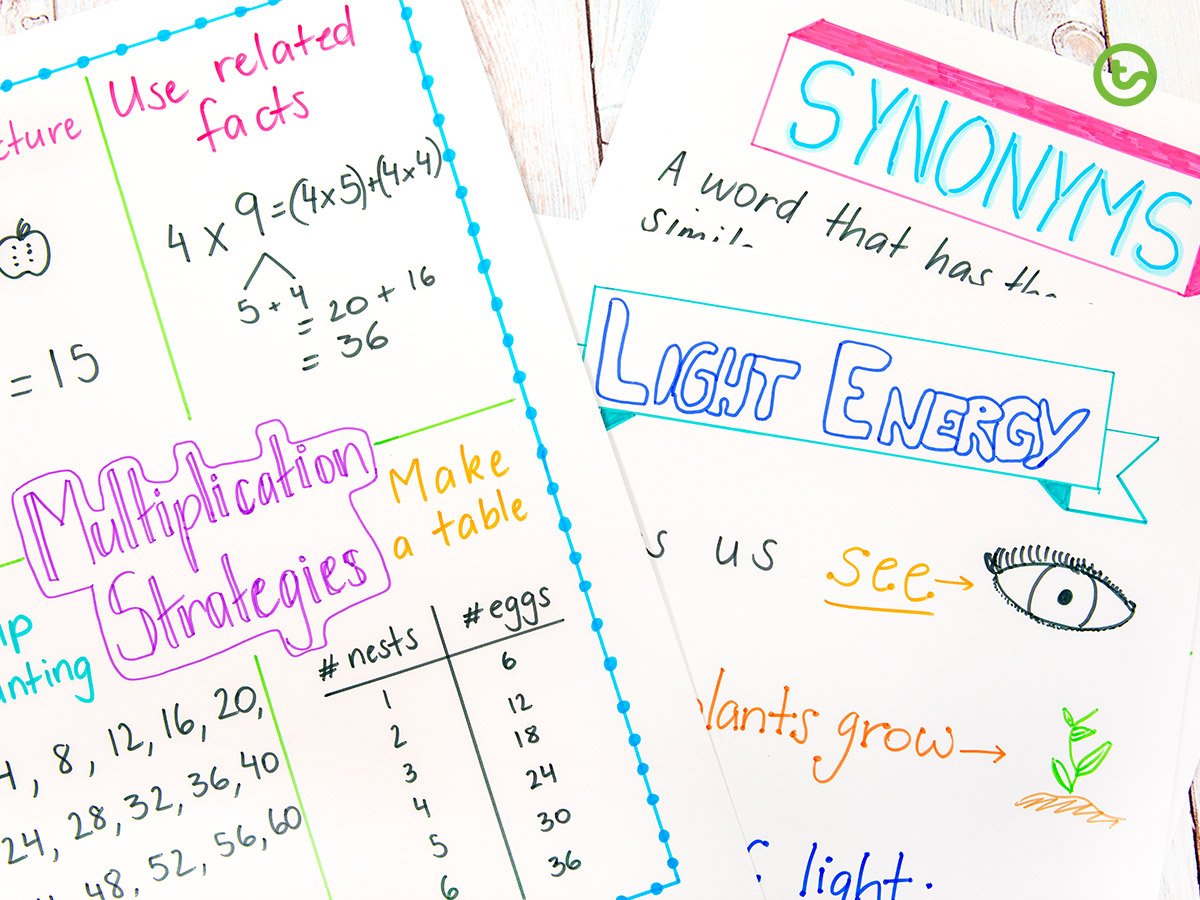 Use related
facts
4 x 9 = (4x5)+(4x4)
5 + 4
= 20 + 16
= 36
= 15
Multiplication
Strategies
Make
a table
# nests # eggs
1 6
2 12
3 18
4 24
5 30
6 36
4, 8, 12, 16, 20,
24, 28, 32, 36, 40
48, 52, 56, 60
SYNONYMS
A word that has the
LIGHT ENERGY
us see →
grow →
light.
ts